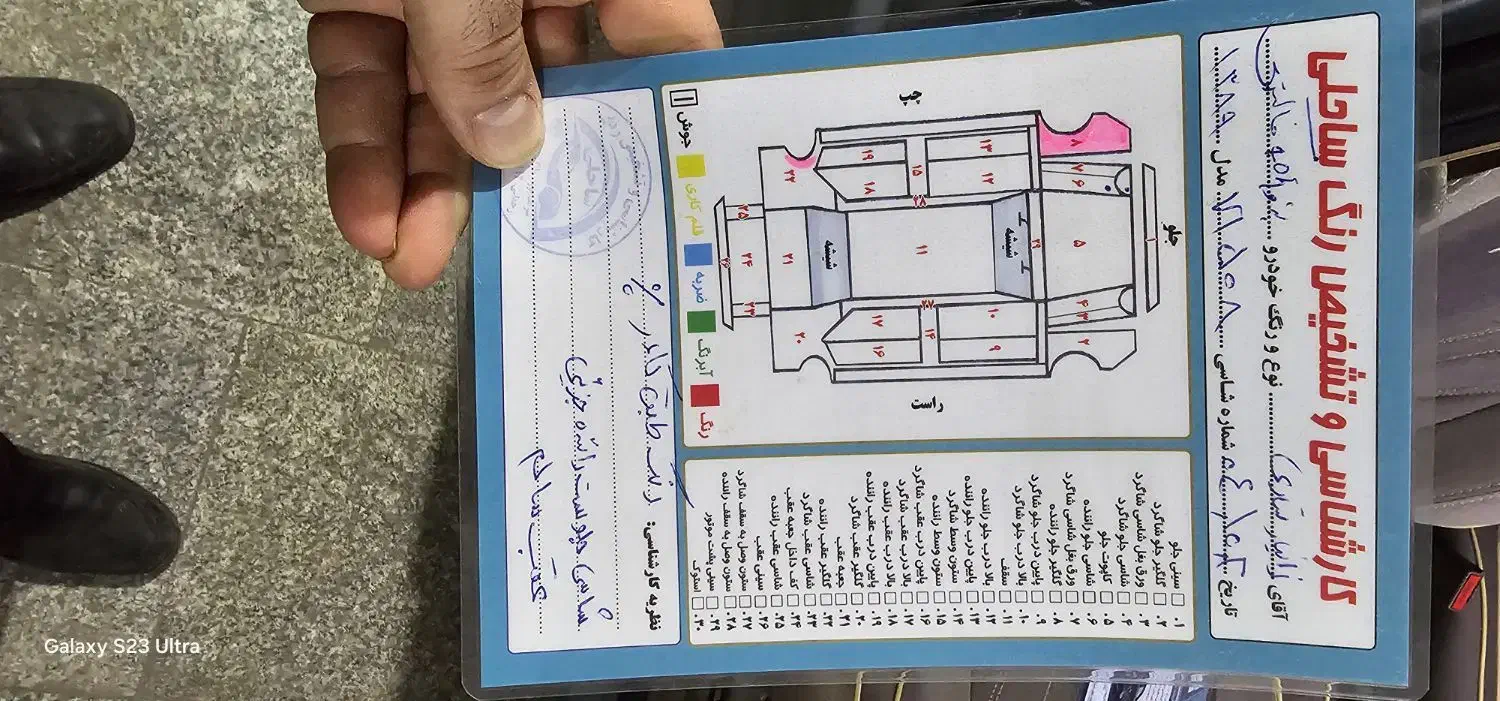 کارشناسی و تشخیص رنگ ساحلی
آقای نوع و رنگ خودرو
مدل ۱۳۸۵ شماره شاسی تاریخ
جلو
چپ
راست
شیشه
شیشه
۱
۲
۳
۴
۵
۶
۷
۸
۹
۱۰
۱۱
۱۲
۱۳
۱۴
۱۵
۱۶
۱۷
۱۸
۱۹
۲۰
۲۱
۲۲
۲۳
۲۴
۲۵
۲۶
۲۹
جوش
قلم کاری
ضربه
آبرنگ
رنگ
۱. سینی جلو
۲. گلگیر جلو شاگرد
۳. ورق بغل شاسی شاگرد
۴. شاسی جلو شاگرد
۵. کاپوت جلو
۶. شاسی جلو راننده
۷. ورق بغل شاسی راننده
۸. گلگیر جلو راننده
۹. پایین درب جلو شاگرد
۱۰. بالا درب جلو شاگرد
۱۱. سقف
۱۲. بالا درب جلو راننده
۱۳. پایین درب جلو راننده
۱۴. ستون وسط شاگرد
۱۵. ستون وسط راننده
۱۶. پایین درب عقب شاگرد
۱۷. بالا درب عقب شاگرد
۱۸. بالا درب عقب راننده
۱۹. پایین درب عقب راننده
۲۰. گلگیر عقب شاگرد
۲۱. جعبه عقب
۲۲. گلگیر عقب راننده
۲۳. شاسی عقب شاگرد
۲۴. کف داخل جعبه عقب
۲۵. شاسی عقب راننده
۲۶. سینی عقب
۲۷. ستون وصل به سقف شاگرد
۲۸. ستون وصل به سقف راننده
۲۹. سینی پشت موتور
۳۰. استوک
نظریه کارشناسی:
عقب سالم
Galaxy S23 Ultra